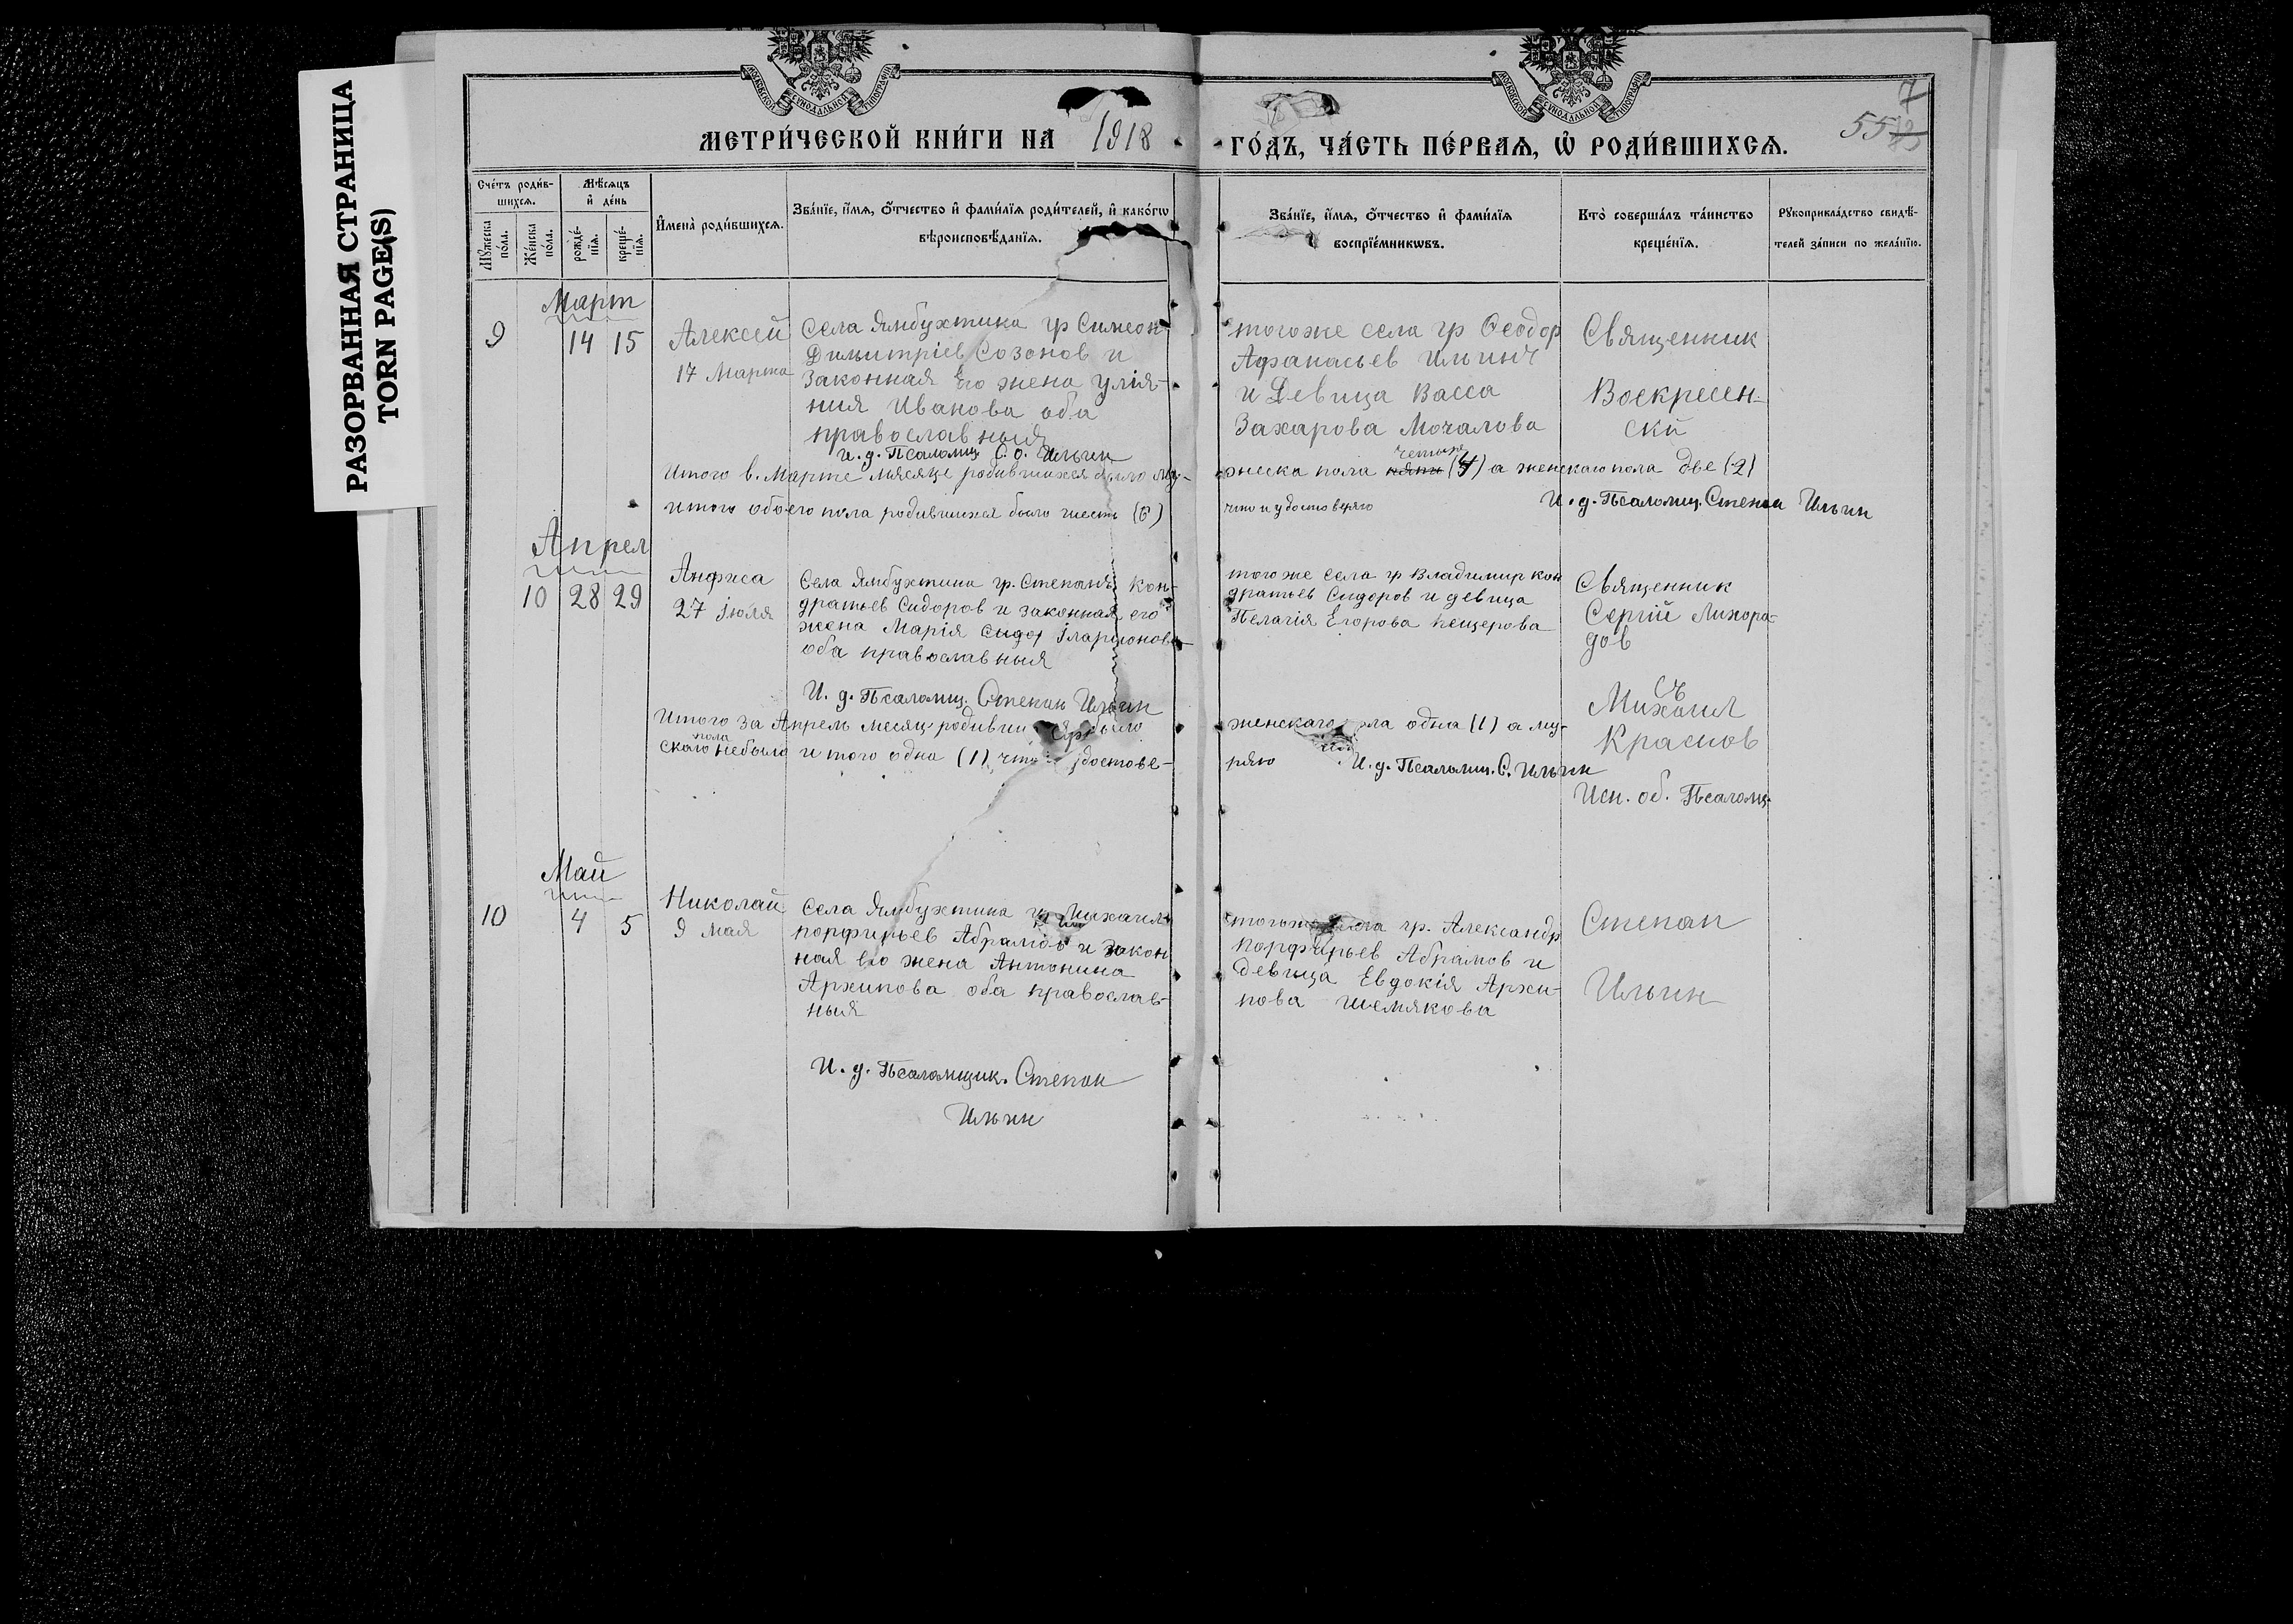 РАЗОРВАННАЯ СТРАНИЦА
TORN PAGE(S)
МОСКОВСКОЙ СУНОДАЛЬНОЙ ТИПОГРАФІИ
МОСКОВСКОЙ СУНОДАЛЬНОЙ ТИПОГРАФІИ
7
55
МЕТРИ́ЧЕСКОЙ КНИ́ГИ НА 1918
ГО́ДЪ, ЧА́СТЬ ПЕ́РВАѦ, Ѡ҆ РОДИ́ВШИХСѦ.
Сче́тъ роди́в-
шихсѧ.
Мꙋ́жеска
по́ла.
Же́нска
по́ла.
Мѣ́сѧцъ
и҆ де́нь
рожде́-
нїѧ.
креще́-
нїѧ.
И҆мена̀ роди́вшихсѧ.
Зва́нїе, и҆́мѧ, ѻ҆́тчество и҆ фами́лїѧ роди́телей, и҆ како́гѡ
вѣроисповѣ́данїѧ.
Зва́нїе, и҆́мѧ, ѻ҆́тчество и҆ фами́лїѧ
воспрїе́мникѡвъ.
Кто̀ соверша́лъ та́инство
креще́нїѧ.
Рꙋкоприкла́дство свидѣ́-
телей за́писи по жела́нїю.
Март
9 14 15
Алексей
17 Марта
Села Ямбухтина гр Симеон
Димитріев Созонов и
Законная Его жена Улія-
ния Иванова оба
православныя
И. д. Псаломщ С. О. Ильин
тогоже села гр Ѳеодор
Афанасьев Ильинъ
и Девица Васса
Захарова Мочалова
Священник
Воскресен-
ски
Итого в. Марте мясяце родившихся было му-
жеска пола четыре (4) а женскаго пола две (2)
Итого обоего пола родившихся было шесть (6)
что и удостоверяю
И. д. Псаломщ. Степан Ильин
Апрел
10 28 29
Анфиса
27 Іюля
Села Ямбухтина гр. Степанъ Кон-
дратьев Сидоров и законная его
жена Марія Сидор Іларионова
оба православныя
И. д. Псаломщ. Степан Ильин
тогоже села гр Владимир Кон
дратьев Сидоров и девица
Пелагія Егорова Пещерова
Священник
Сергій Лихора-
дов
Итого за Апрель месяц родивши было
женскаго пола одна (1) а му-
пола
скаго небыло и того одна (1) что удостове-
ряю И. д. Псаломщ. С. Ильин
Съ
Михаил
Краснов
Исп. об. Псаломщ.
Май
10 4 5
Николай
9 мая
Села Ямбухтина гр Михаилъ
Порфирьев Абрамов и закон
ная его жена Антонина
Архипова оба православ-
ныя
И. д. Псаломщик. Степан
Ильин
тогоже села гр. Александр
Порфирьев Абрамов и
девица Евдокія Архи-
пова Шемякова
Степан
Ильин